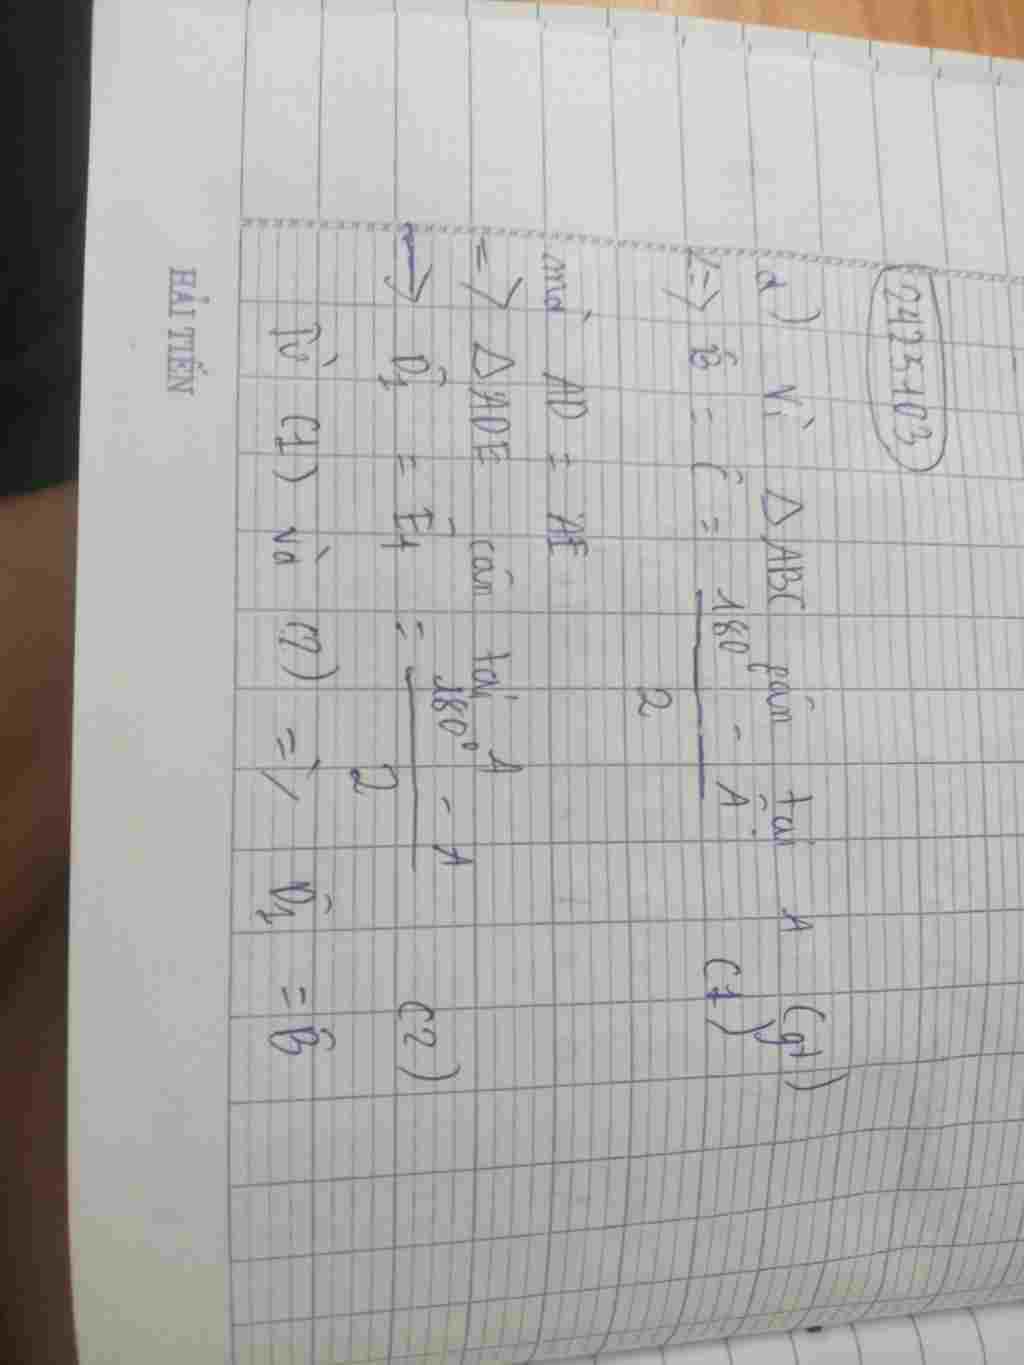 02425103
a) Vì △ABC cân tại A (gt)
=> B̂ = Ĉ = 180° - Â / 2 (1)
mà AD = AE
=> △ADE cân tại A
→ D̂1 = Ê1 = 180° - A / 2 (2)
Từ (1) và (2) => D̂1 = B̂
HẢI TIẾN